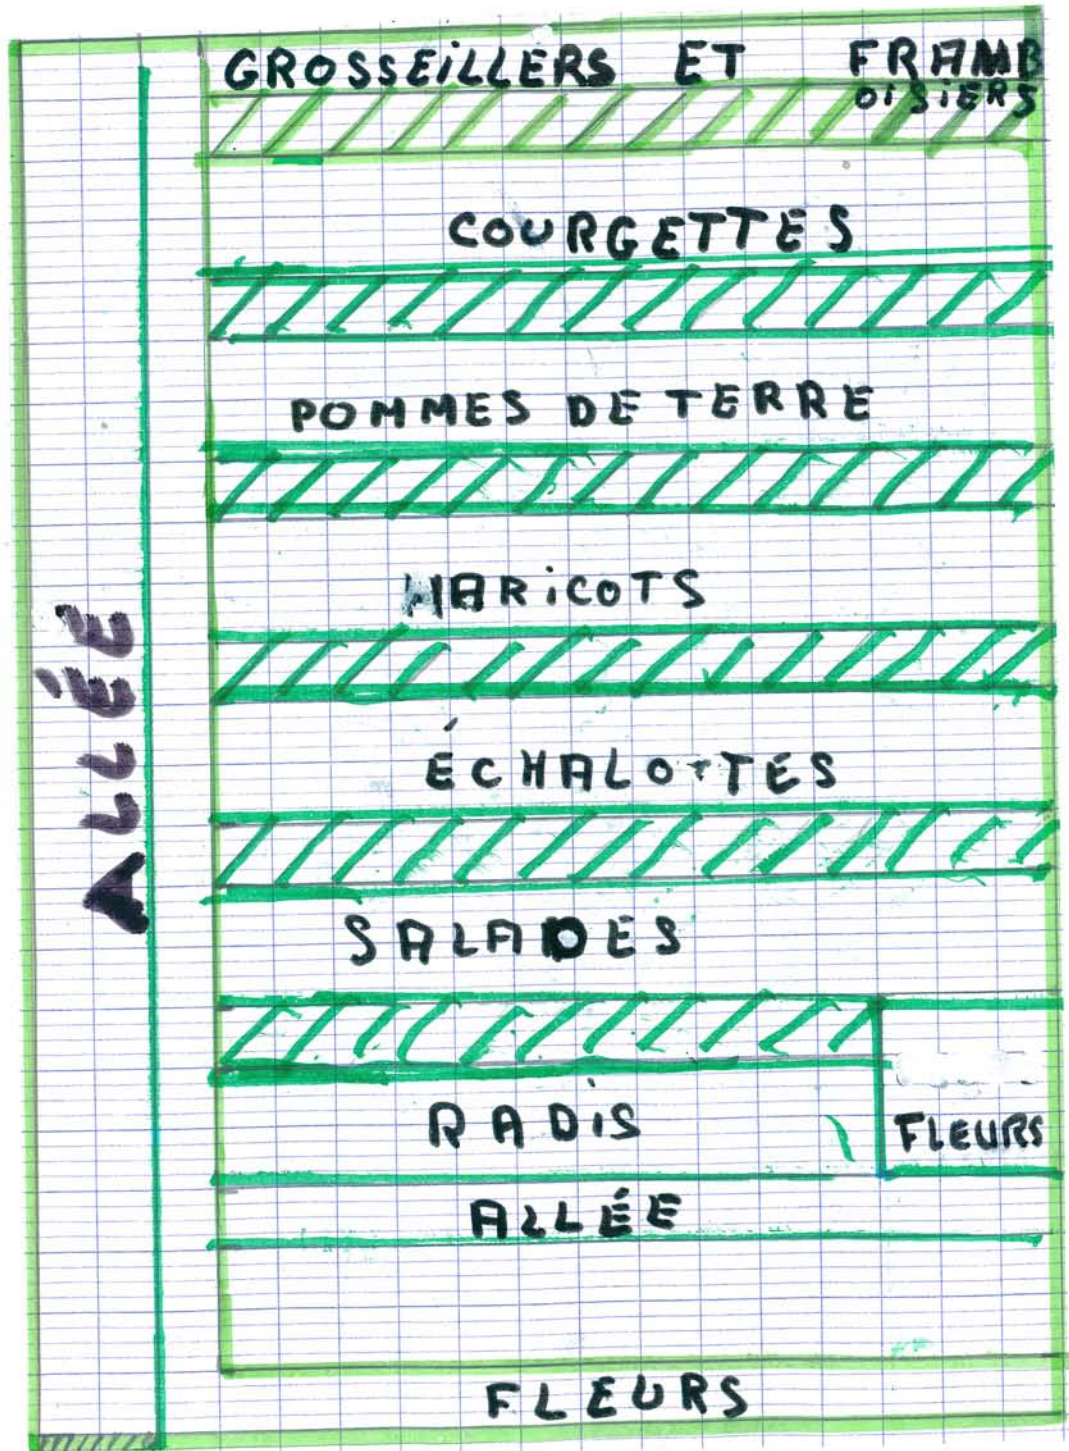 GROSSEiLLERS ET FRAMB
OiSiERS
COURGETTES
POMMES DE TERRE
HARiCOTS
ÉCHALOTTES
SALADES
RADiS
FLEURS
ALLÉE
FLEURS
ALLÉE